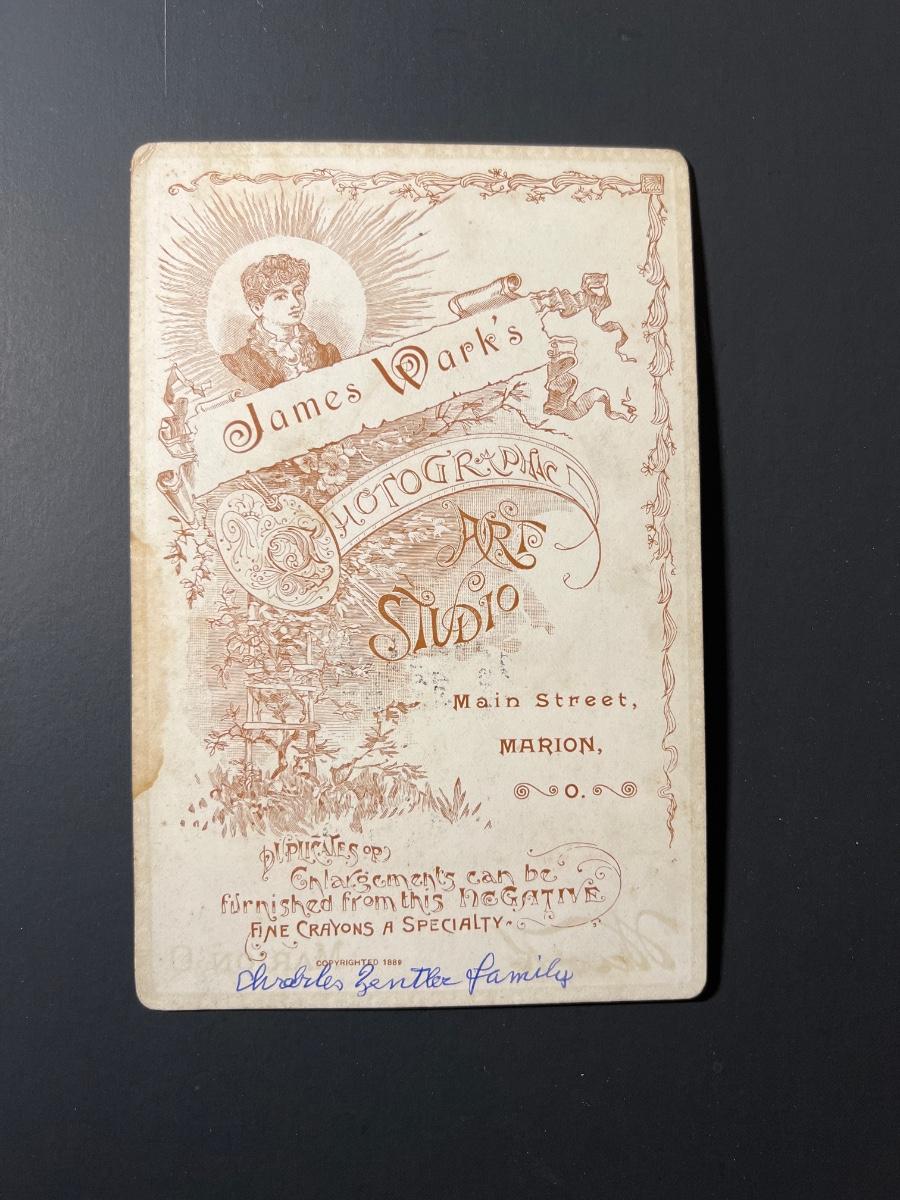 James Wark's
PHOTOGRAPHIC
ART
STUDIO
Main Street,
MARION,
O.
DUPLICATES OR
Enlargements can be
furnished from this NEGATIVE
FINE CRAYONS A SPECIALTY.
COPYRIGHTED 1889
Charles Zentler family